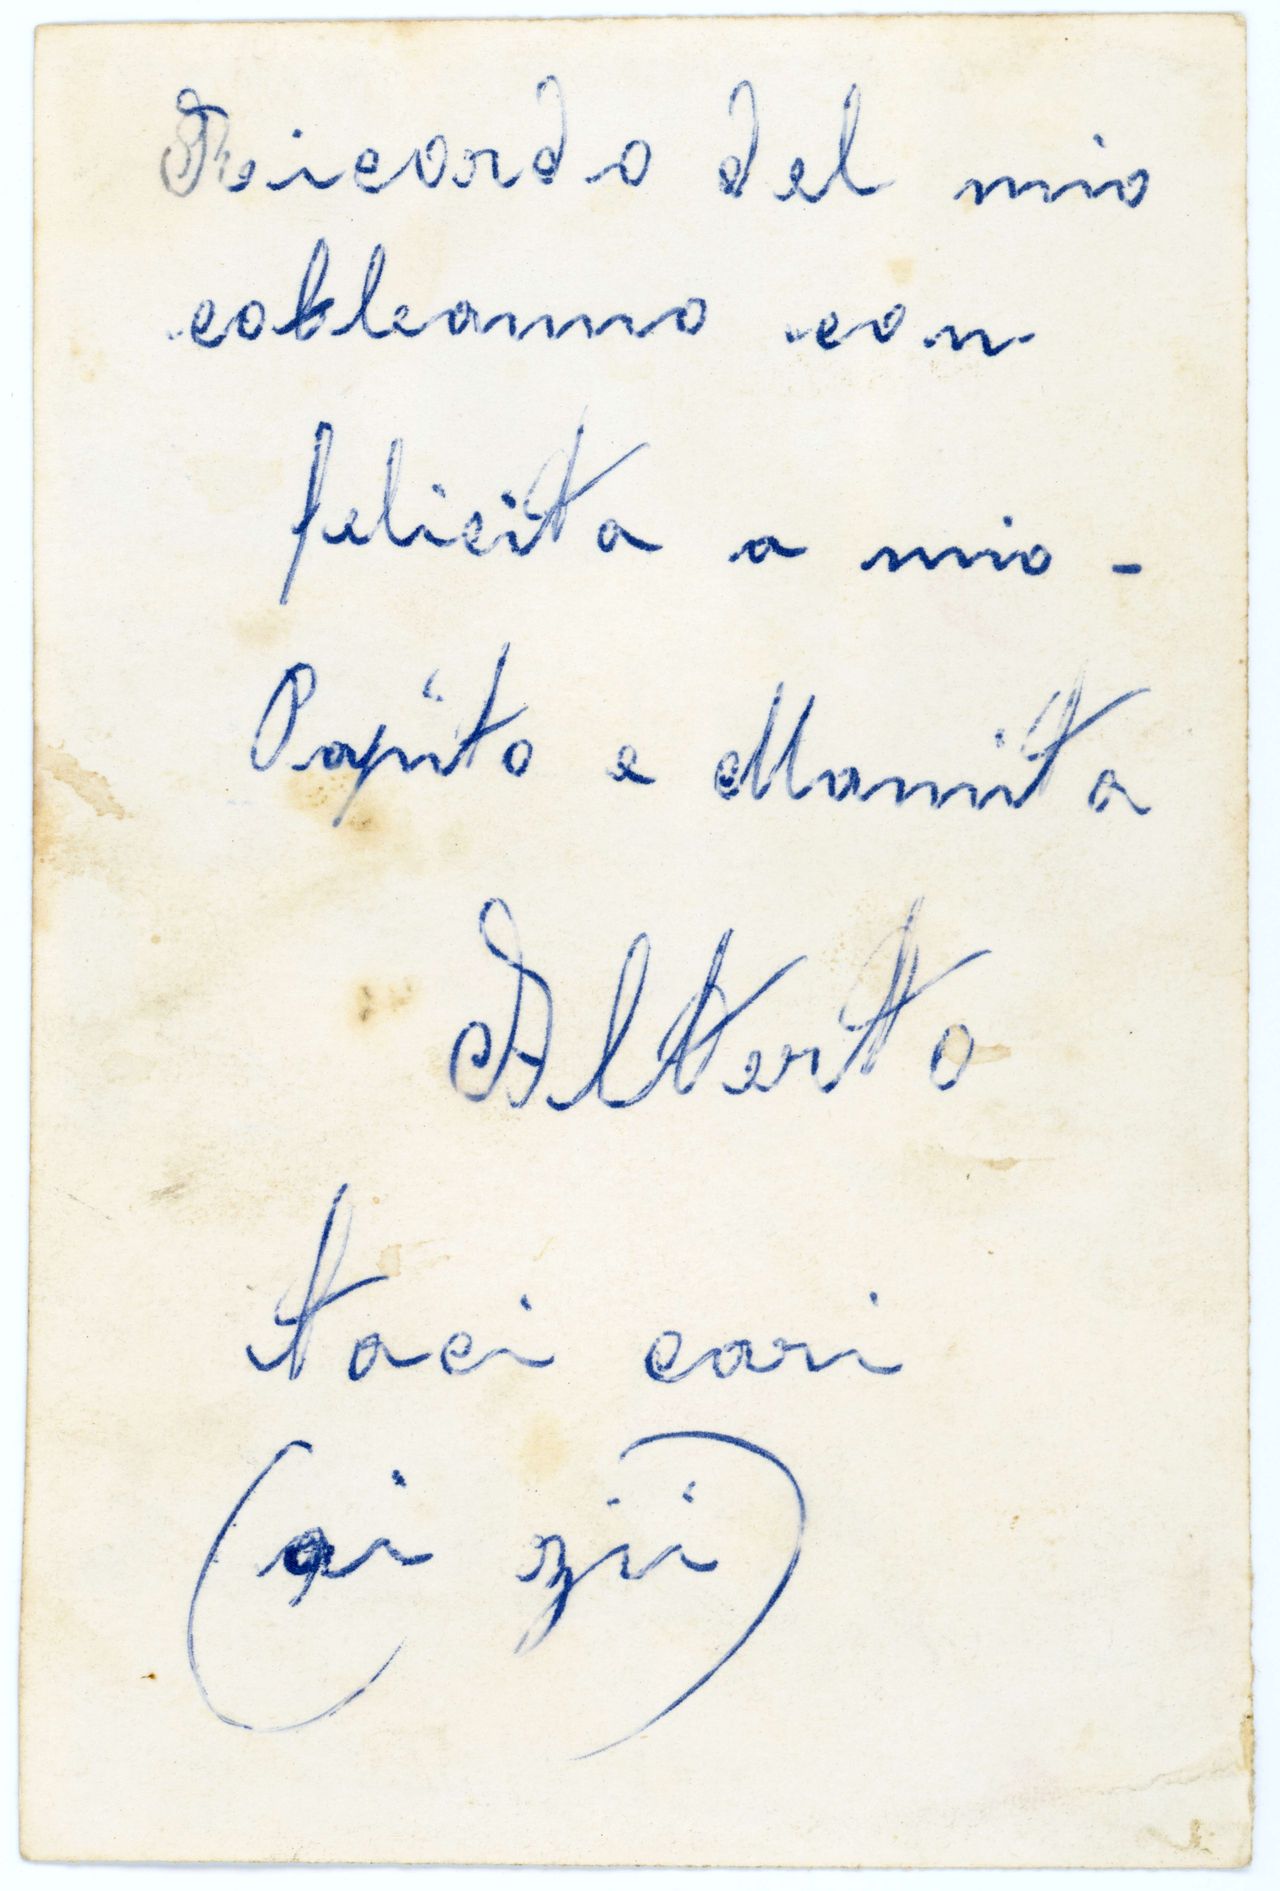 Ricordo del mio
cobleanno con
felicita a mio -
Papito e Mamita
Alterto
taci cari
(ai zii)